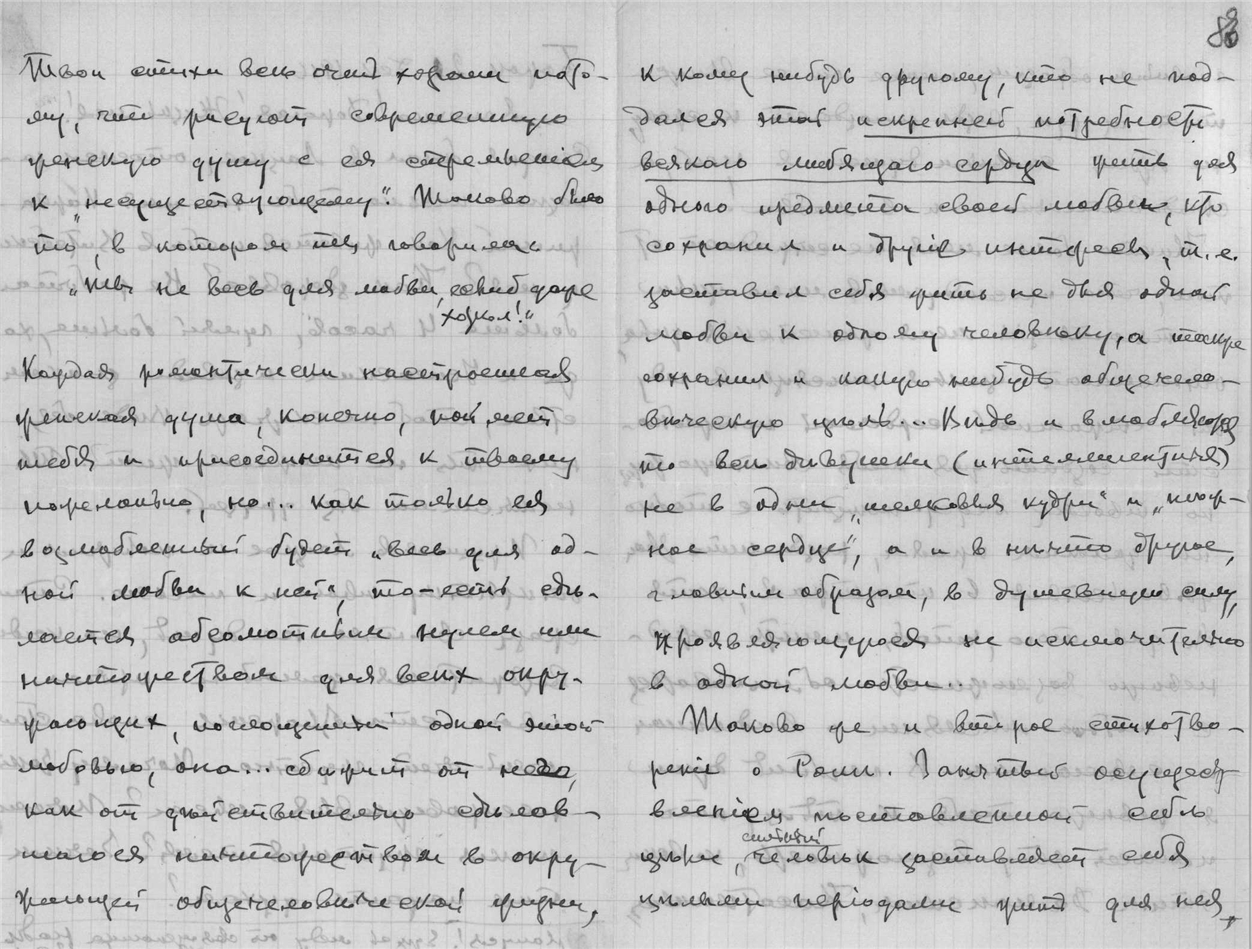 Твои стихи всѣ очень хороши пото-
му, что рисуют современную
женскую душу с ея стремленіем
к „несуществующему“. Таково было
то, в котором ты говорила:
„ты не весь для любви,
ходил!“
Каждая романтически настроенная
женская душа, конечно, поймет
тебя и присоединится к твоему
пожеланію, но... как только ея
возлюбленный будет „весь для од-
ной любви к ней“, то-есть сдѣ-
лается абсолютным нулем или
ничтожеством для всѣх окру-
жающих, поглощенный одной этой
любовью, она... сбѣжит от него,
как от дѣйствительно сдѣлав-
шагося ничтожеством в окру-
жающей общечеловѣческой жизни,
83
к кому нибудь другому, кто не под-
дался этой искренней потребности
всякаго любящаго сердца жить для
одного предмета своей любви, кто
сохранил и другіе интересы, т.е.
заставил себя жить не для одной
любви к одному человѣку, а также
сохранил и какую нибудь общечело-
вѣческую цѣль... Вѣдь и влюбляются
то всѣ дѣвушки (интеллигентныя)
не в одни „шелковыя кудри“ и „нѣж-
ное сердце“, а и в нѣчто другое,
главным образом, в душевную силу,
проявляющуюся не исключительно
в одной любви..
Таково же и второе стихотво-
реніе о Роли. Занятый осущест-
вленіем поставленной себѣ
цѣли, человѣк заставляет себя
цѣлыми періодами жить для нея,